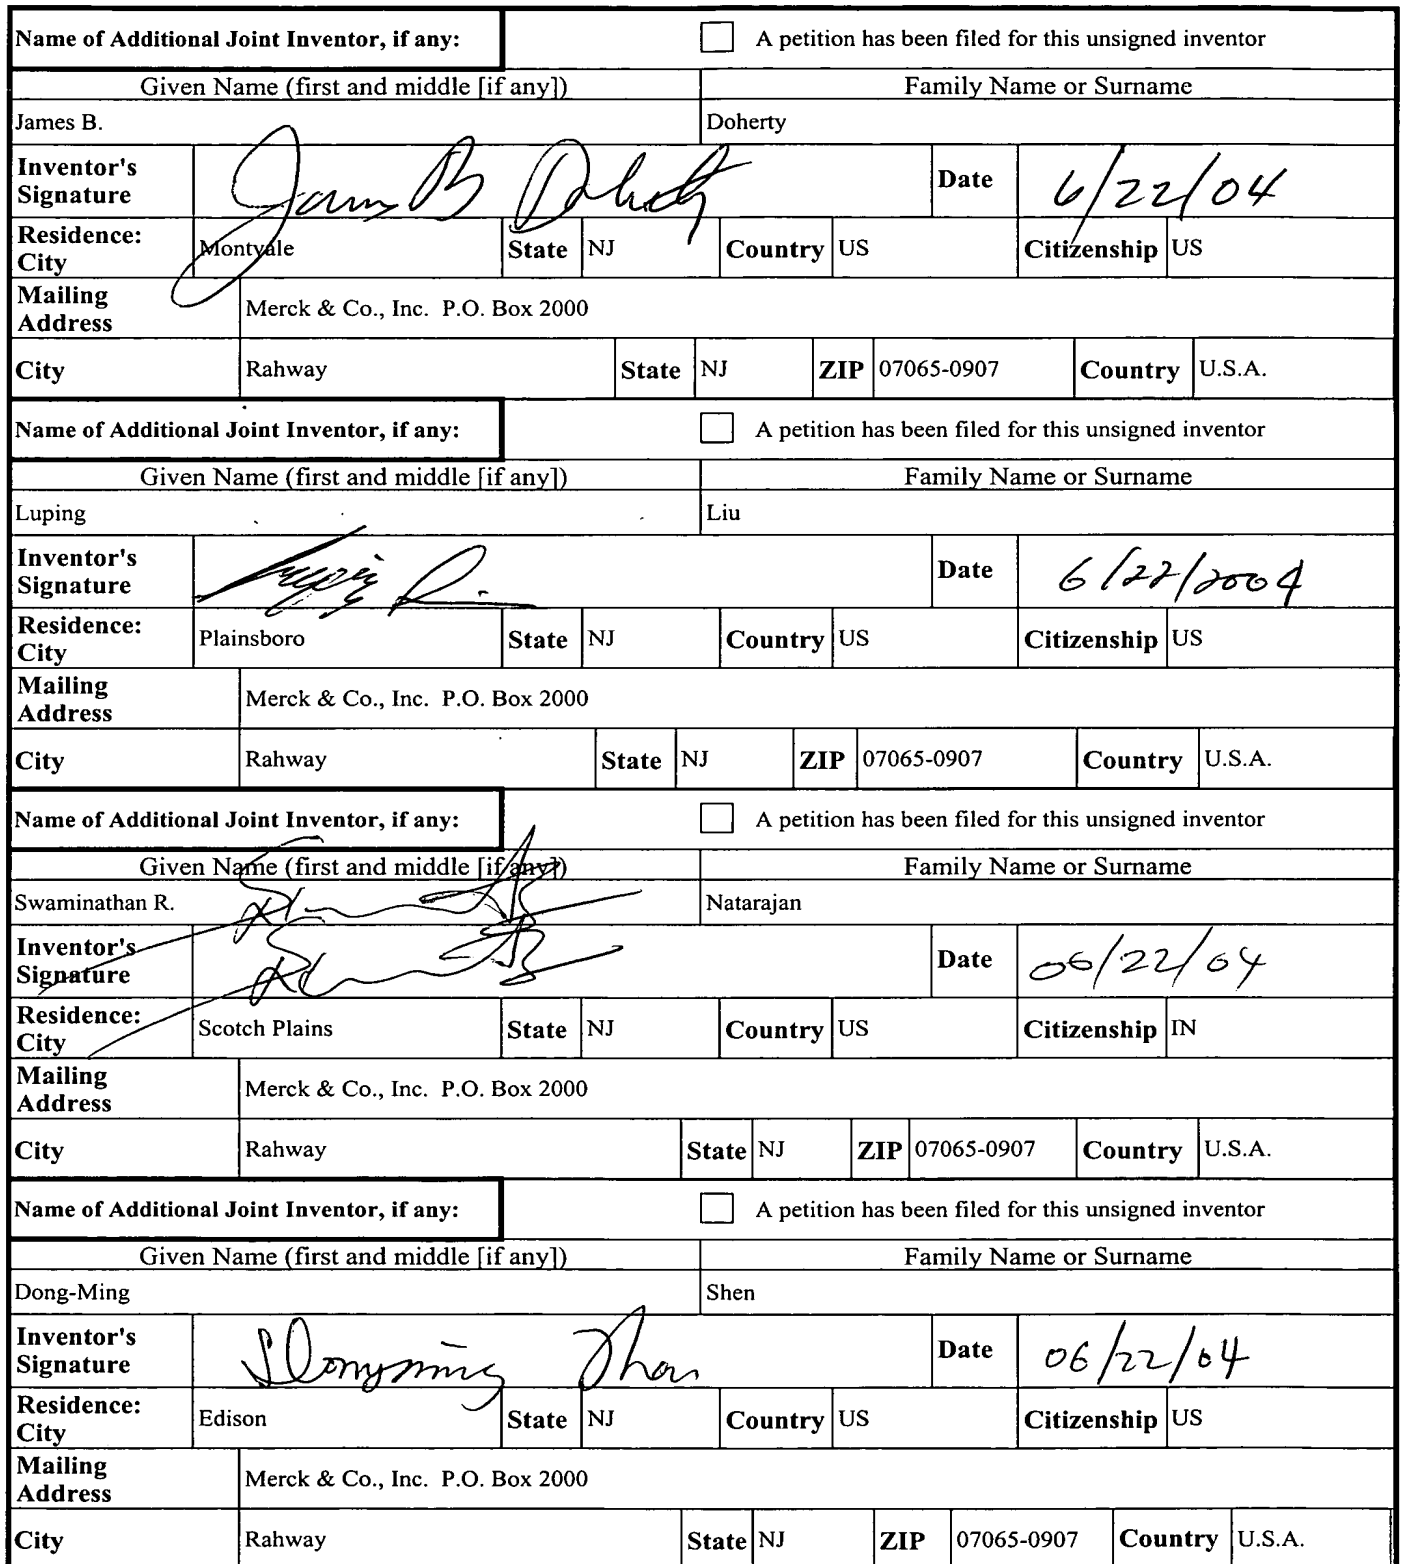 Name of Additional Joint Inventor, if any: A petition has been filed for this unsigned inventor
Given Name (first and middle [if any]) Family Name or Surname
James B. Doherty
Inventor's Signature James B Doherty Date 6/22/04
Residence: City Montvale State NJ Country US Citizenship US
Mailing Address Merck & Co., Inc. P.O. Box 2000
City Rahway State NJ ZIP 07065-0907 Country U.S.A.
Name of Additional Joint Inventor, if any: A petition has been filed for this unsigned inventor
Given Name (first and middle [if any]) Family Name or Surname
Luping Liu
Inventor's Signature Date 6/22/2004
Residence: City Plainsboro State NJ Country US Citizenship US
Mailing Address Merck & Co., Inc. P.O. Box 2000
City Rahway State NJ ZIP 07065-0907 Country U.S.A.
Name of Additional Joint Inventor, if any: A petition has been filed for this unsigned inventor
Given Name (first and middle [if any]) Family Name or Surname
Swaminathan R. Natarajan
Inventor's Signature Date 06/22/04
Residence: City Scotch Plains State NJ Country US Citizenship IN
Mailing Address Merck & Co., Inc. P.O. Box 2000
City Rahway State NJ ZIP 07065-0907 Country U.S.A.
Name of Additional Joint Inventor, if any: A petition has been filed for this unsigned inventor
Given Name (first and middle [if any]) Family Name or Surname
Dong-Ming Shen
Inventor's Signature Date 06/22/04
Residence: City Edison State NJ Country US Citizenship US
Mailing Address Merck & Co., Inc. P.O. Box 2000
City Rahway State NJ ZIP 07065-0907 Country U.S.A.